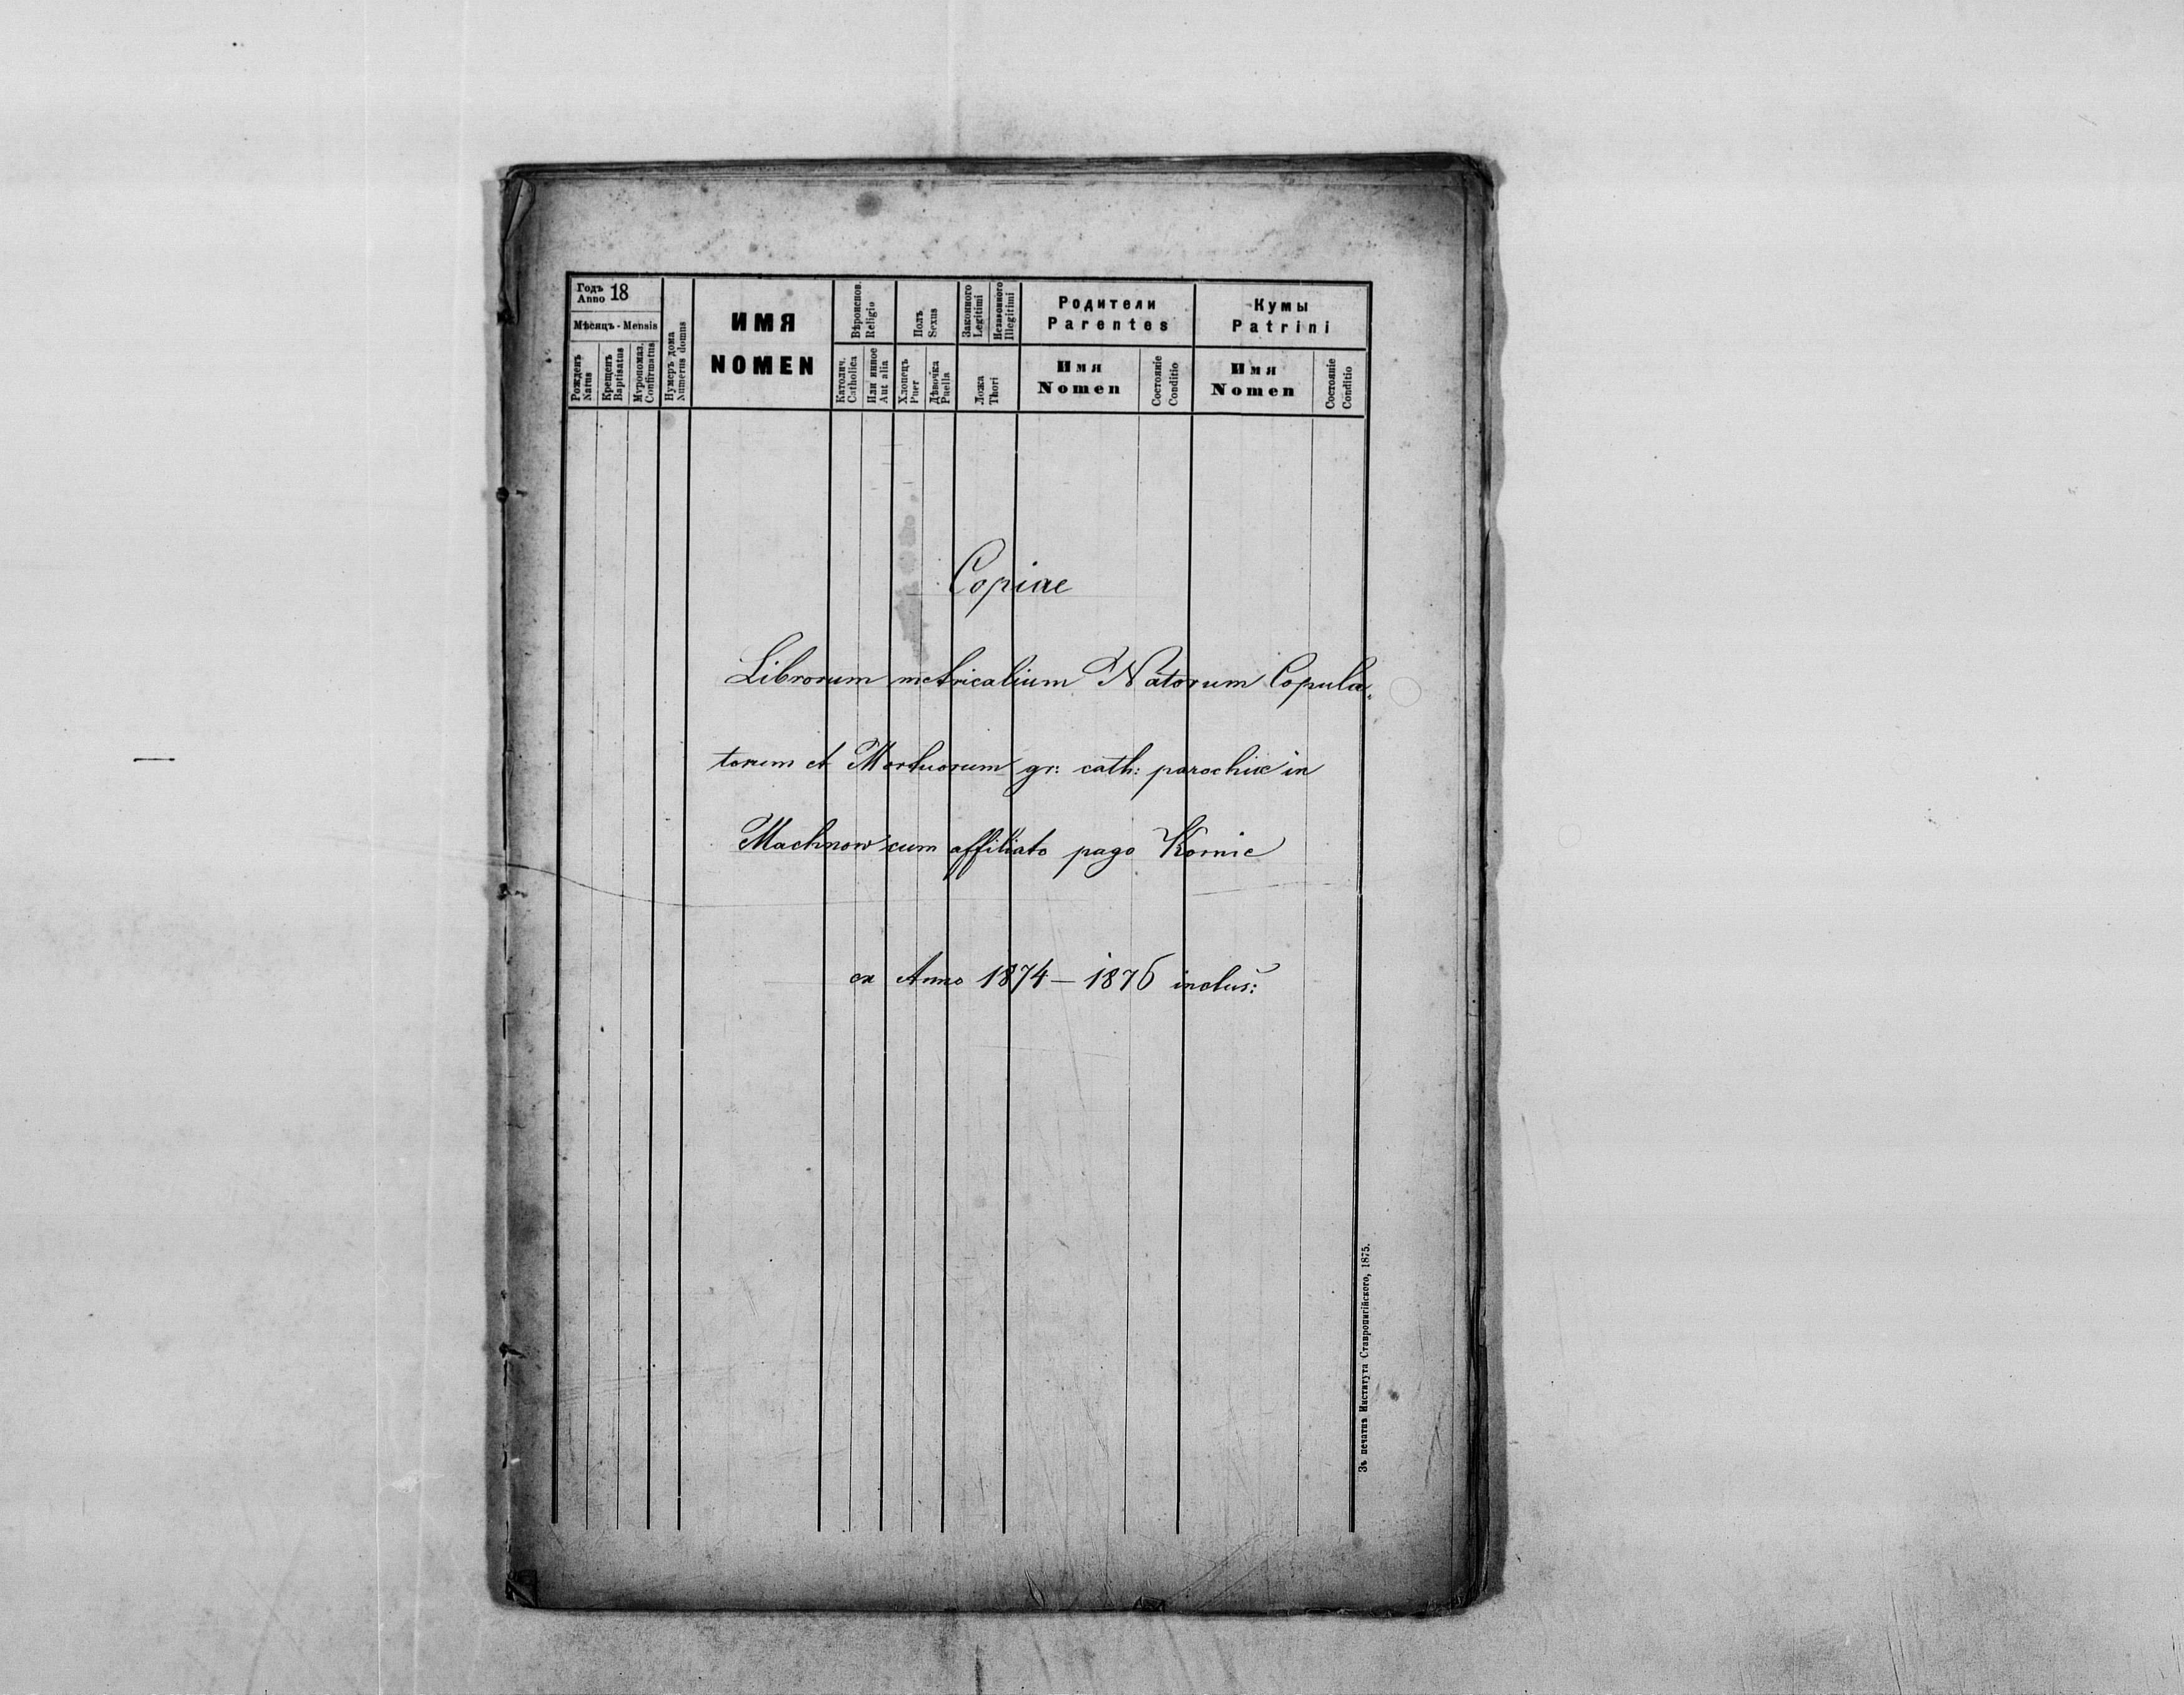 Годъ
Anno 18
Мѣсяцъ - Mensis
Рожденъ
Natus
Крещенъ
Baptisatus
Мѵропомаз.
Confirmatus
Нумеръ дома
Numerus domus
ИМЯ
NOMEN
Вѣроиспов.
Religio
Католич.
Catholica
Или инное
Aut alia
Полъ
Sexus
Хлопецъ
Puer
Дѣвочка
Puella
Законного
Legitimi
Незаконного
Illegitimi
Ложа
Thori
Родители
Parentes
Имя
Nomen
Состояніе
Conditio
Кумы
Patrini
Имя
Nomen
Состояніе
Conditio
Copiae
Librorum metricalium Natorum Copula„
torum et Mortuorum gr: cath: parochiæ in
Machnow cum affiliato pago Kornie
ex Anno 1874 — 1876 inclus:
Зъ печатнѣ Института Ставропигійского, 1875.